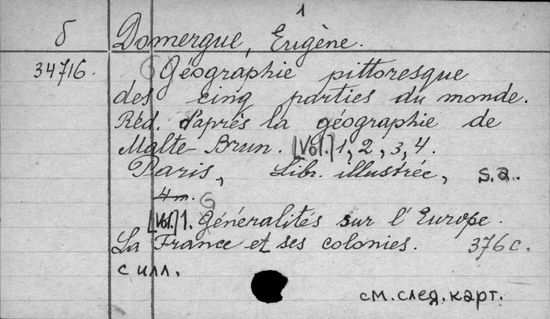 1
б Domergue, Eugène.
34716. Géographie pittoresque
des cinq parties du monde.
Réd. d'après la géographie de
Malte-Brun. [Vol.] 1, 2, 3, 4.
Paris, Libr. illustrée, s.a.
4 m.
[Vol.] 1. Généralités sur l'Europe.
La France et ses colonies. 376 c.
с илл.
см. след. карт.